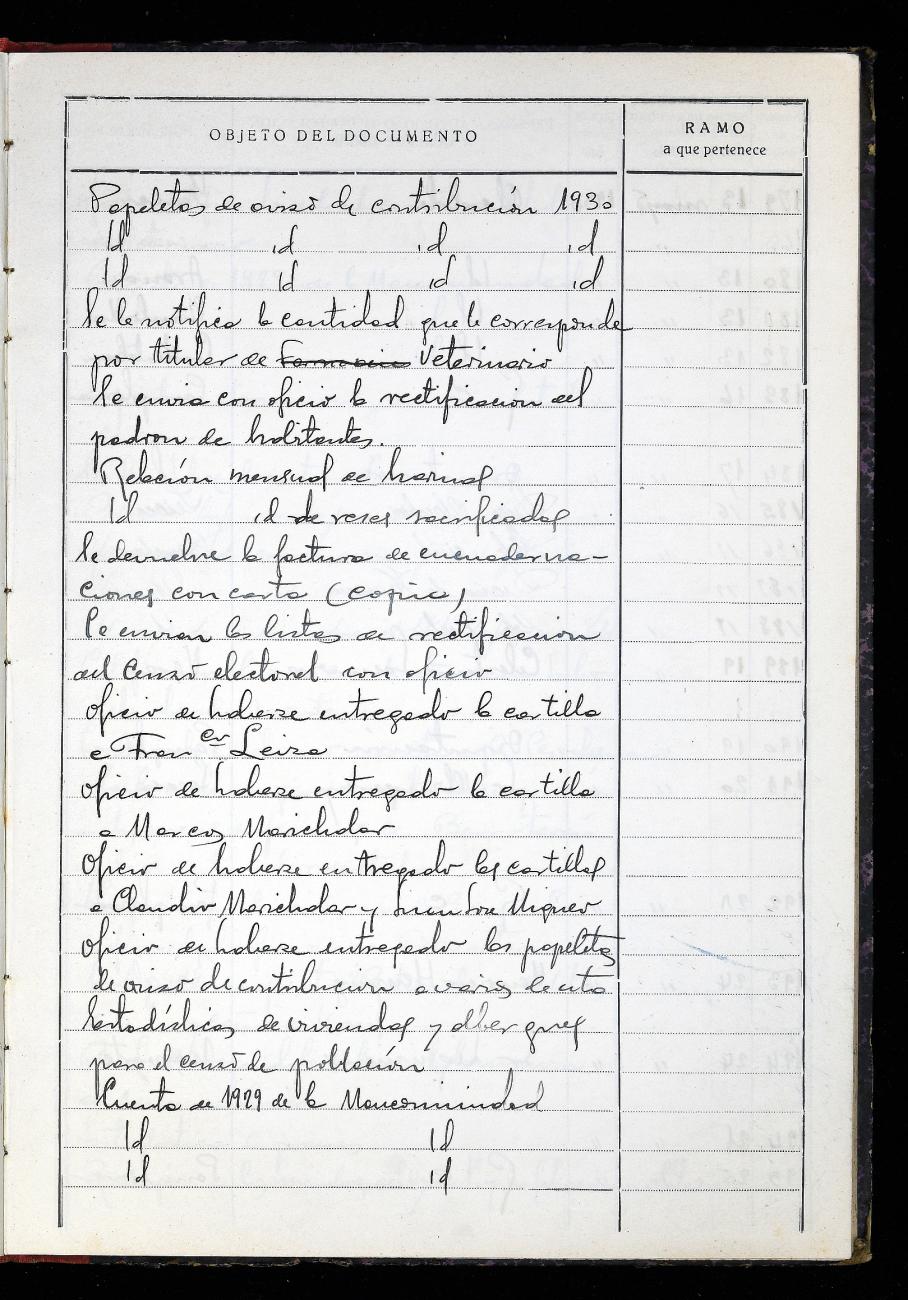 OBJETO DEL DOCUMENTO
RAMO
a que pertenece
Papeletas de aviso de contribución 1930
Id id id id
Id id id id
Se le notifica la cantidad que le corresponde
por titular de Farmacia Veterinario
Se envia con oficio la rectificacion del
padron de habitantes.
Relación mensual de harinas
Id id de reses sacrificadas
Se devuelve la factura de encuaderna-
ciones con carta (copia)
Se envian las listas de rectificacion
del Censo electoral con oficio
Oficio de haberse entregado la cartilla
a Fran co Leiza
Oficio de haberse entregado la cartilla
a Marcos Marichalar
Oficio de haberse entregado las cartillas
a Claudio Marichalar y
Oficio de haberse entregado las papeletas
de aviso de contribucion a varios de
Estadísticas de viviendas y albergues
para el censo de población
Cuenta de 1929 de la Mancomunidad
Id Id
Id Id